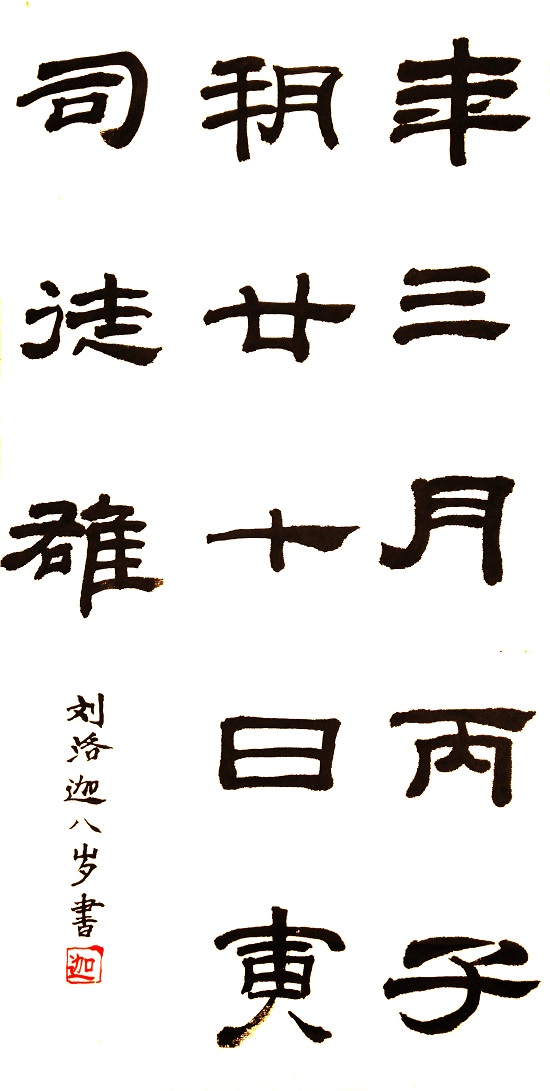 年三月丙子
朔廿七日寅
司徒雄
刘洛迦八岁書
迦